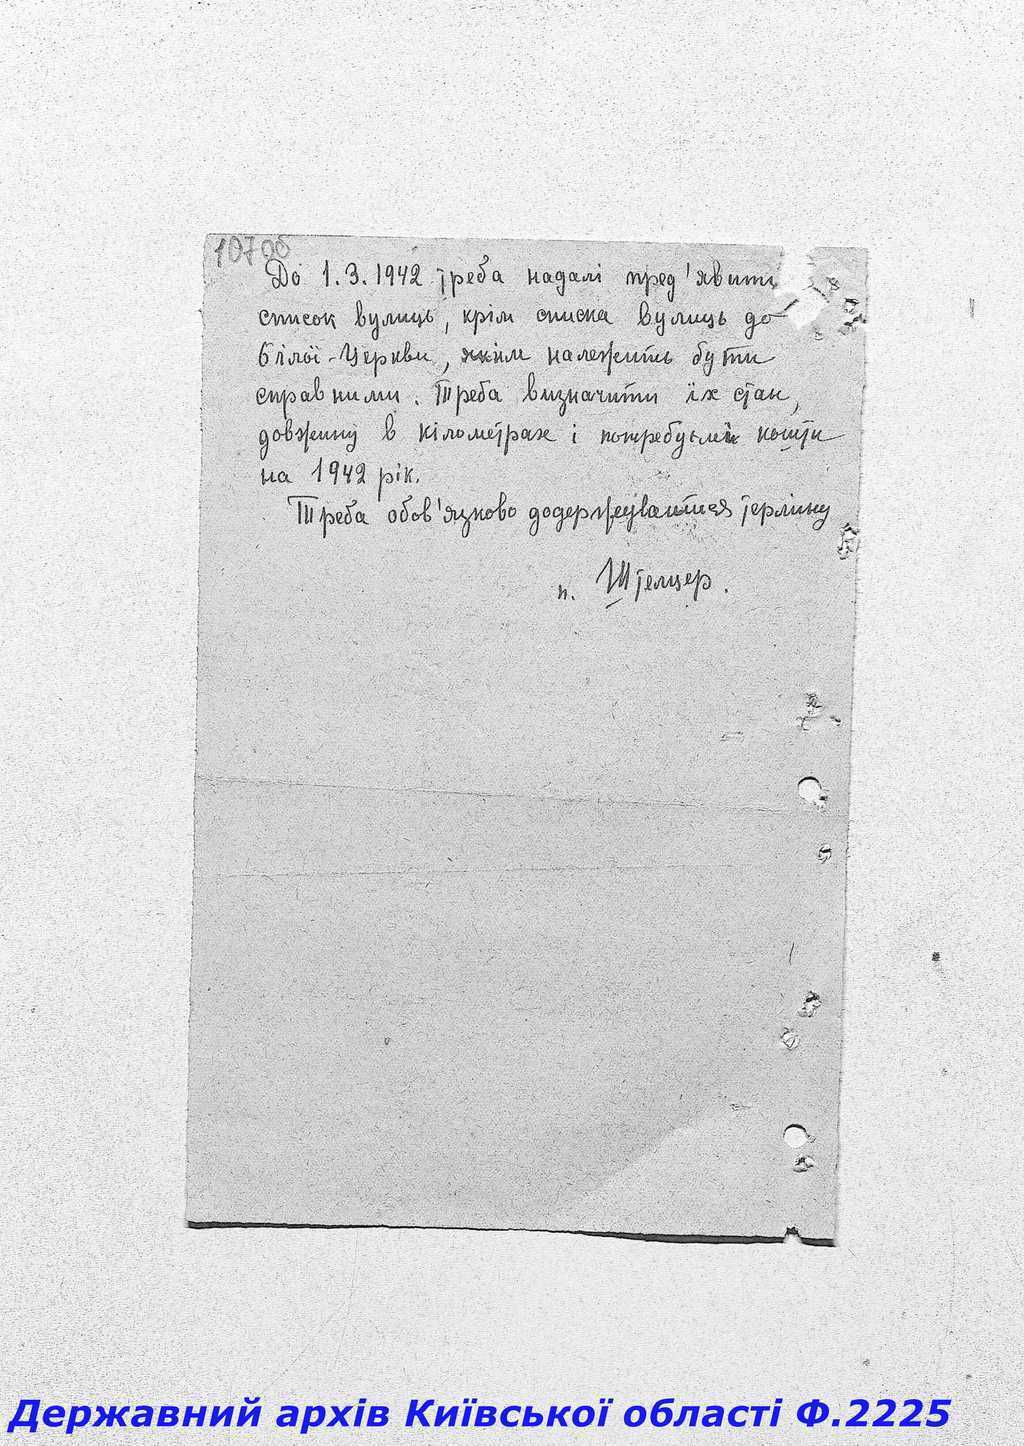 107об
До 1.3.1942 треба надалі пред'явити
список вулиць, крім списка вулиць до
Білої-Церкви, яким належить бути
справними. Треба визначити їх стан,
довжину в кілометрах і потребуємі кошти
на 1942 рік.
Треба обов'язково додержуватися терміну
п. Штелцер.
Державний архів Київської області Ф.2225